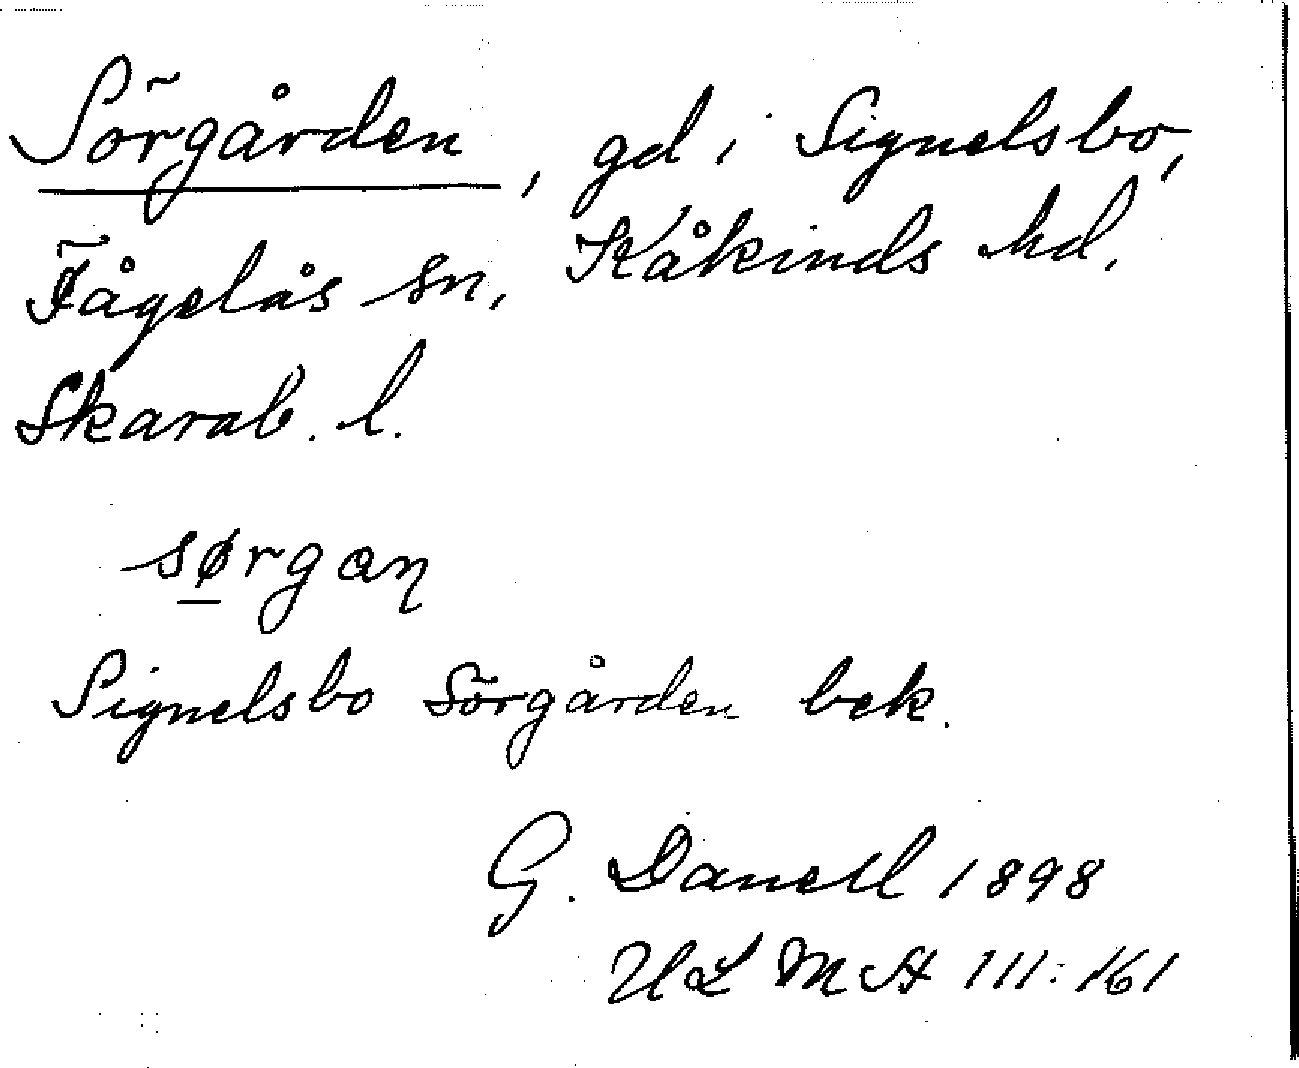 Sörgården, gd i Signelsbo,
Fågelås sn, Kåkinds hd,
Skarab. l.
sørgaŋ
Signelsbo Sörgården bek.
G. Danell 1898
ULMA 111:161